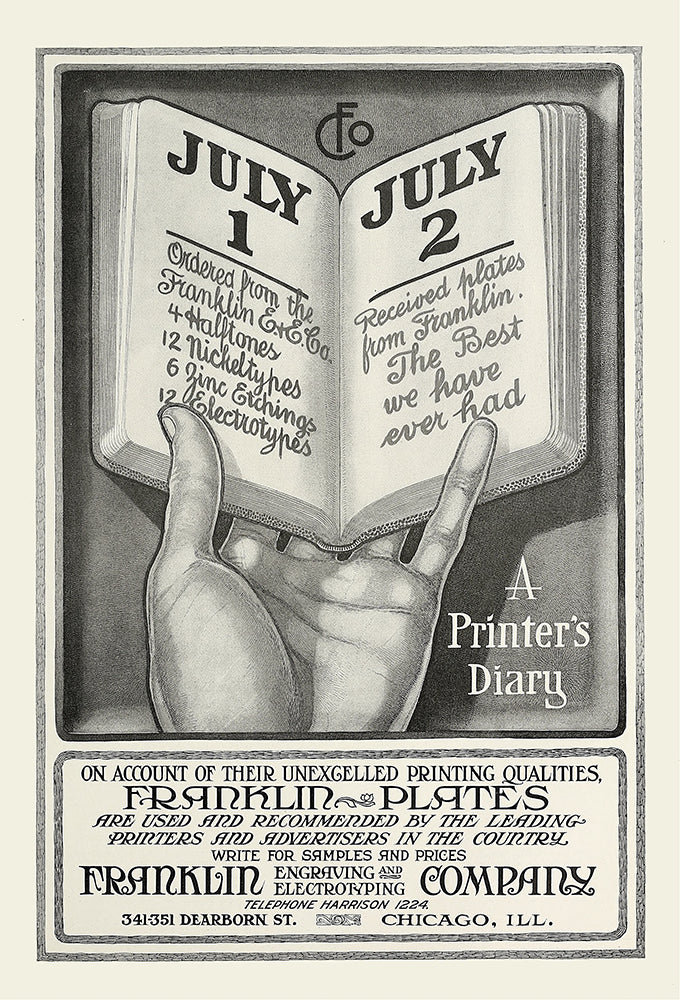 CFo
JULY
1
Ordered from the
Franklin E&E.Co.
4 Halftones
12 Nickeltypes
6 Zinc Etchings
12 Electrotypes
JULY
2
Received plates
from Franklin.
The Best
we have
ever had
A
Printer's
Diary
ON ACCOUNT OF THEIR UNEXCELLED PRINTING QUALITIES,
FRANKLIN PLATES
ARE USED AND RECOMMENDED BY THE LEADING
PRINTERS AND ADVERTISERS IN THE COUNTRY.
WRITE FOR SAMPLES AND PRICES
FRANKLIN ENGRAVING AND ELECTROTYPING COMPANY
TELEPHONE HARRISON 1224.
341-351 DEARBORN ST. CHICAGO, ILL.